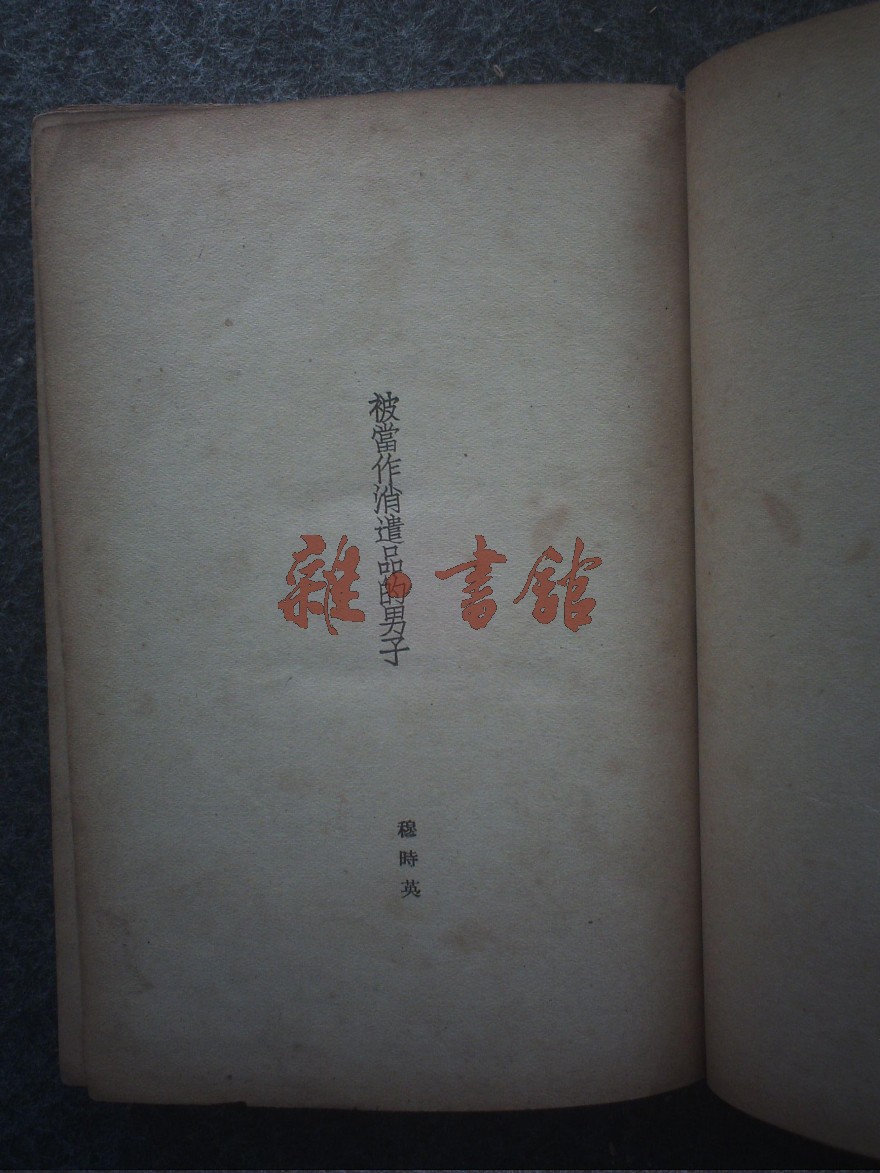 被當作消遣品的男子
雜·書館
穆時英